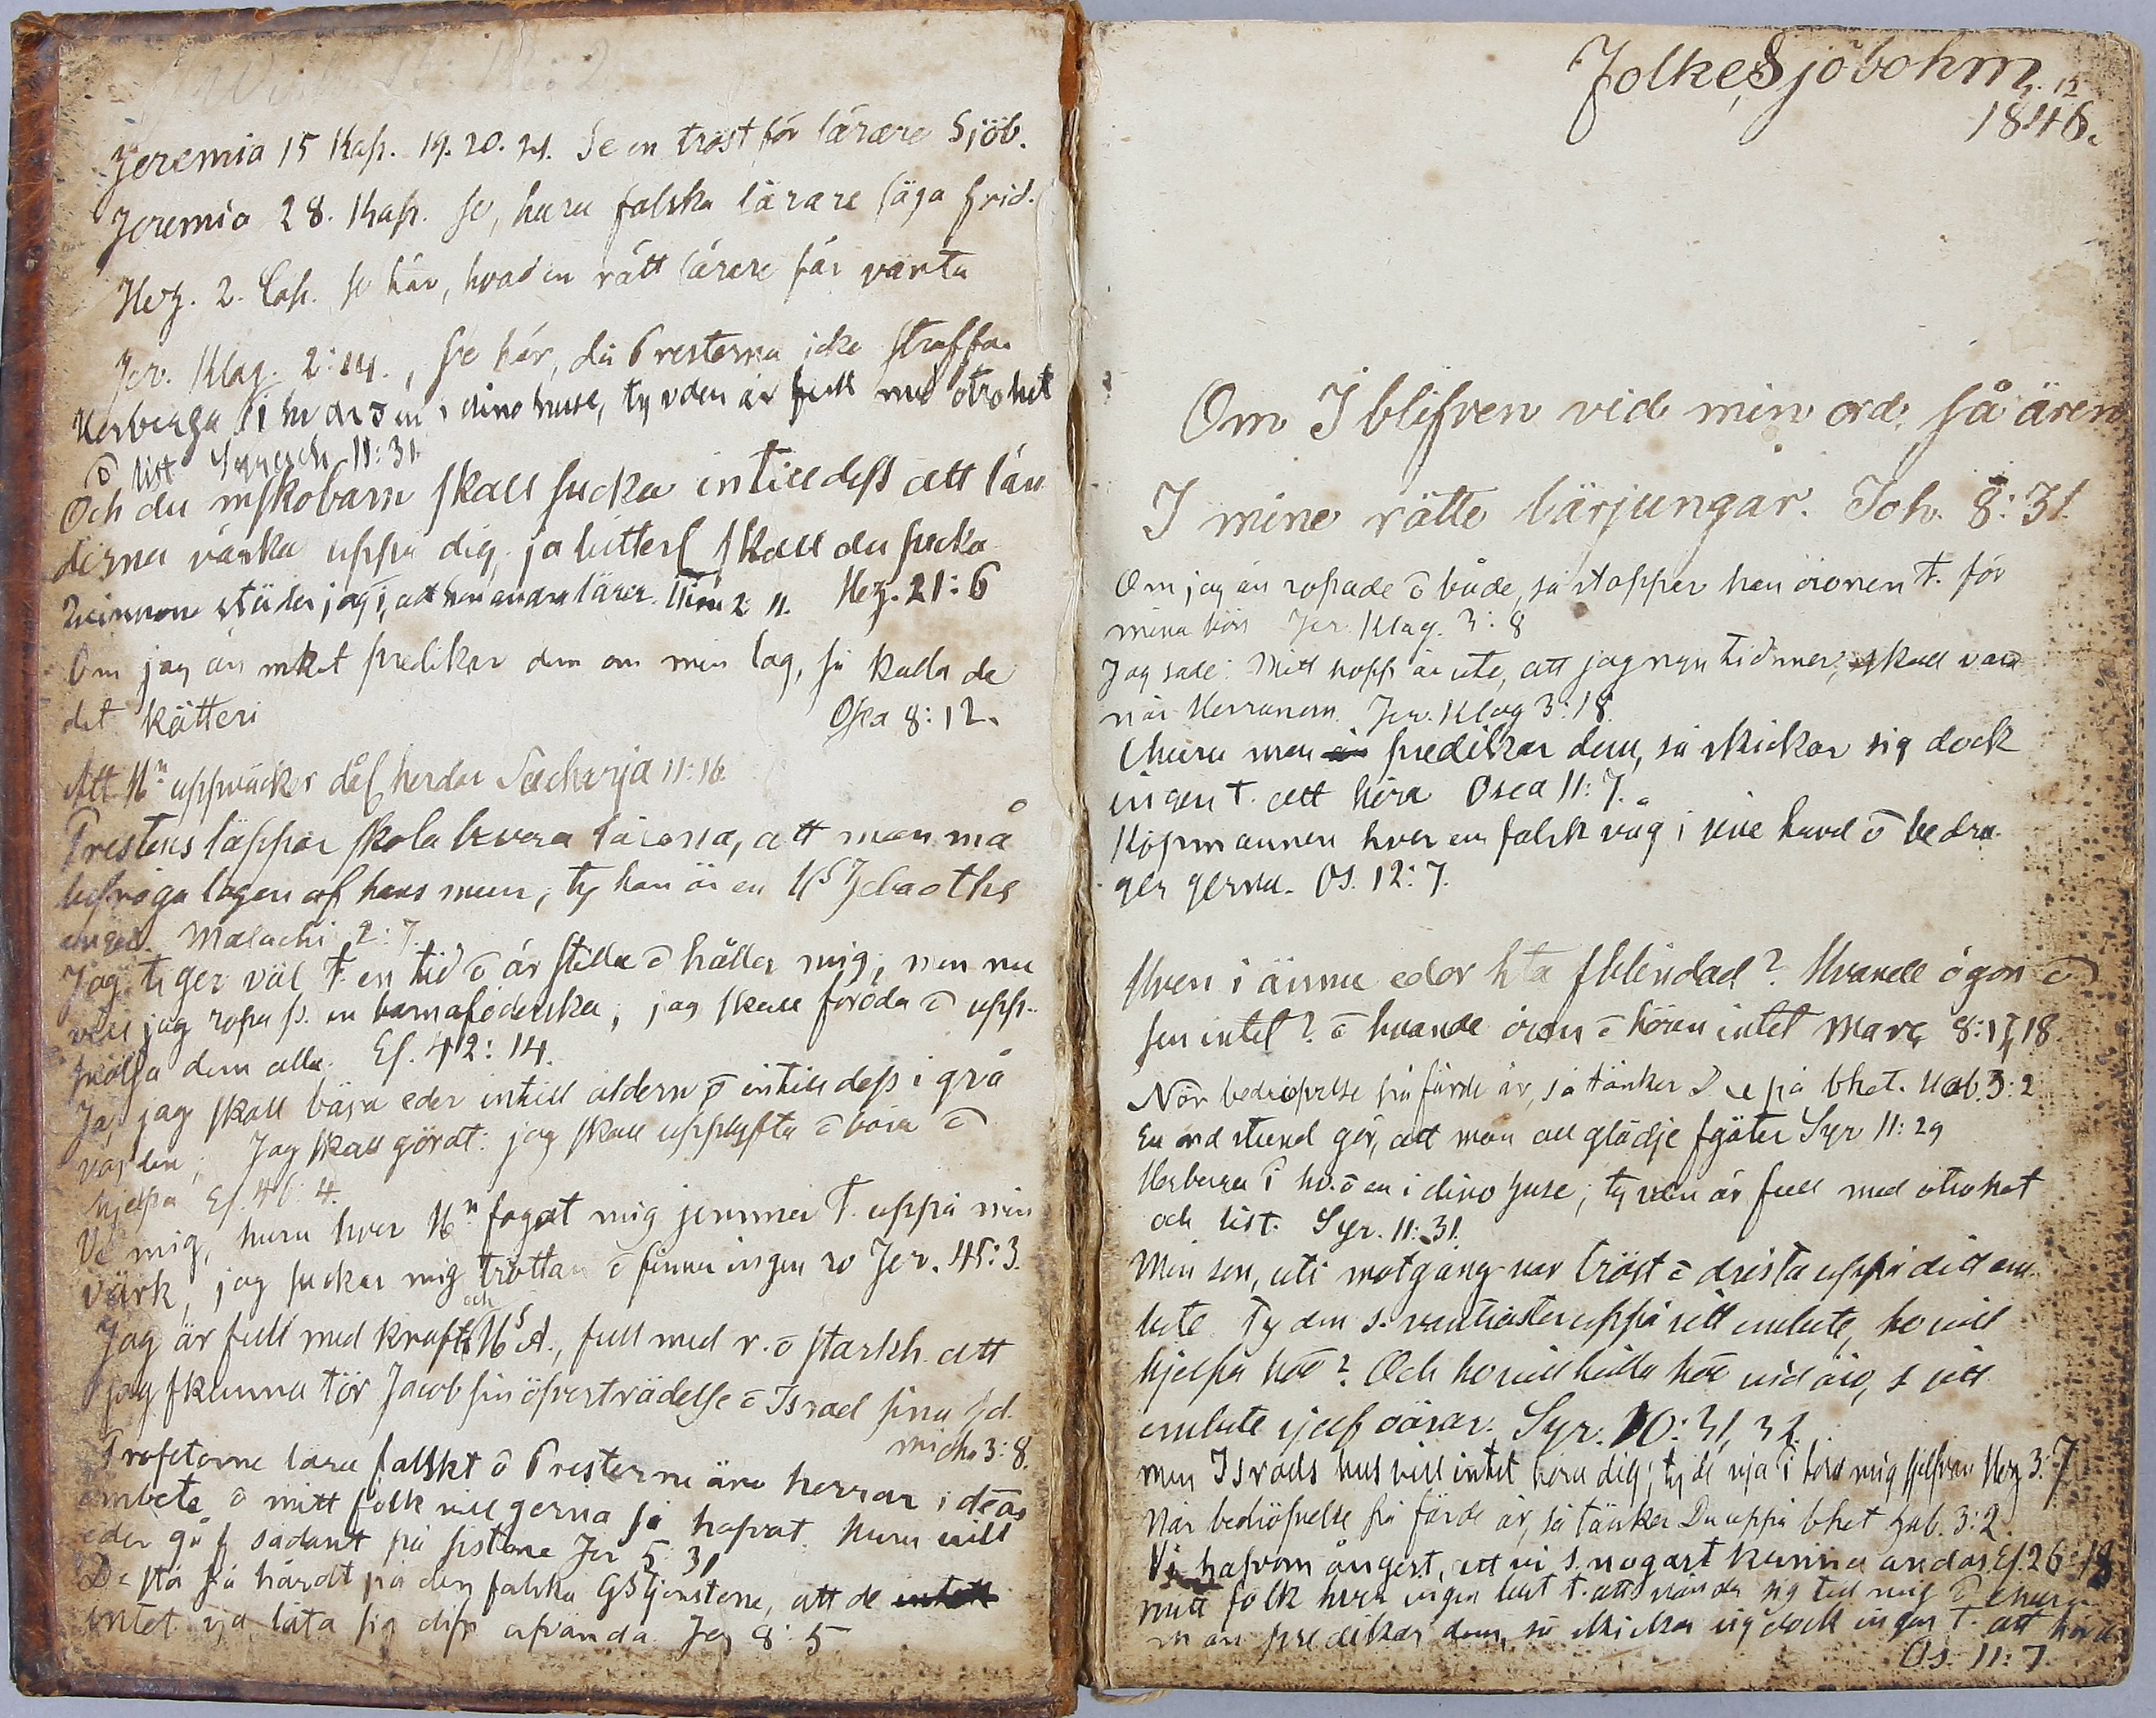 Jeremia 15 Kap. 19. 20. 21. Se en tröst för lärare Sjöb.
Jeremia 28. Kap. se, huru falska lärare säga frid.
Hez. 2. Cap. se här, hvad en rätt lärare får vänta
Jer. Klag. 2:14., se här, då Presterna icke straffa
Herberga i hvar o en i dino huse, ty verlden är full med otrohet
ō list Syrach 11:31.
Och du mskobarn skall sucka intill dess att län
derna värka uppå dig, ja bitterl skall du sucka
Hez. 21:6
Qvinnon städer jag i, att hon andra lärer. Tim 2 11.
Om jag än mket predikar dem om min lag, så kalla de
det kätteri Osea 8:12.
Att Hn uppväcker dål herdar Sacharja 11:16.
Prestens läppar skola bevara lärona, att man må
befråga lagen af hans mun; ty han är en Hs Zebaoths
ängel. Malachi 2:7.
Jag tiger väl t. en tid ō är stilla ō håller mig; men nu
vill jag ropa s. en barnaföderska; jag skall föröda ō upp-
svälja dem alla. Es. 42:14.
Ja, jag skall bära eder intill åldern ō intill dess i grå
varden; Jag skall görat: jag skall upplyfta ō bära ō
hjelpa Es. 46 4.
Ve mig, huru hver Hn fogat mig jemmer t. uppå min
värk, jag suckar mig tröttan ō finner ingen ro Jer. 45:3.
Jag är full med kraft och Hs A., full med r. ō starkh. att
jag fkunna tör Jacob sin öfverträdelse ō Israel sina sd.
mich. 3:8.
Profeterne lära falskt ō Presterne äro herrar i deras
ämbete ō mitt folk vill gerna så hafvat. Huru vill
eder gå f sådant på sistone Jer 5:31
De stå så hårdt på den falska Gstjenstene, att de
intet vja låta sig difr afvända Jer 8:5
Folke Sjöbohm. 12
1846.
Om I blifven vid min ord, så ären
I mine rätte lärjungar. Joh. 8:31.
Om jag än ropade ō både, så stopper han öronen t. för
mina bön Jer. Klag. 3:8
Jag sade: Mitt hopp är ute, att jag ngn tid mer, skall vara
när Herranom. Jer. Klag 3:18.
Churu man predikar dem, så skickar sig dock
ingen t. att höra Osea 11:7.
Köpmannen hver en falsk våg i sine hand ō bedra-
ger gerna. Os. 12:7.
Hven i ännu edor hta fblindad? Hvande ögon ō
sen intet? ō hvande öron ō hören intet Marc. 8:17, 18.
När bedröfvelse på färde är, så tänker D.u på bhet. Hab. 3:2
En ond stund gör, att man all glädje fgäter Syr 11:29
Herberga i hv. ō en i dino huse; ty verlden är full med otrohet
och list. Syr. 11:31.
Min son, uti motgång var tröst ō drista uppå ditt em-
bete. Ty den s. vantröster uppå sitt embete, ho vill
hjelpa hō? Och ho vill hålla hō vid äro, s sitt
embete sjelf oärar. Syr. 10:31, 32.
men Israels hus vill intet höra dig; ty de vja i höra mig sjelfvan Hez 3:7
När bedröfvelse på färde är, så tänker Du uppå bhet Hab. 3:2.
Vi hafvom ångest, att vi s. nogast kunna andas Es. 26:18
mitt folk hver ingen lust t. att vända sig till mig ō ehuru
man predikar dem, så skickar sig dock ingen t. att höra
Os. 11:7.